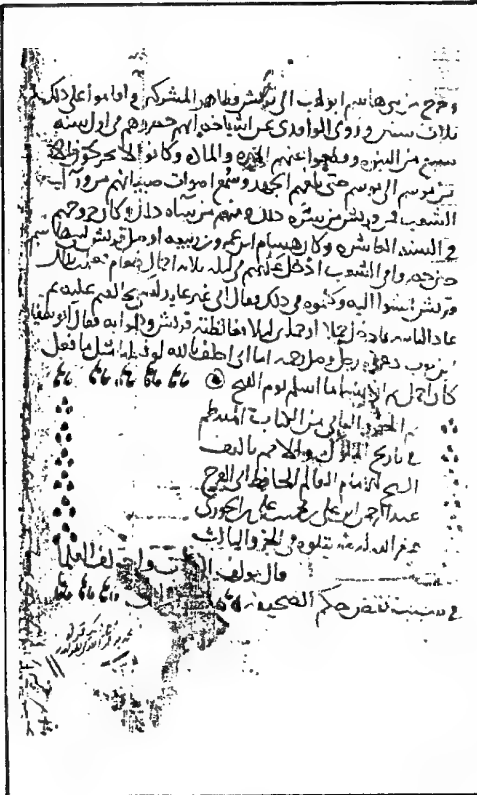 وخرج من بني هاشم ابو لهب الى قريش وظاهر المشركين واقاموا على ذلك
ثلاث سنين وروى الواقدي عن اشياخه انهم حصروهم في اول سنة
سبع من النبوة وقطعوا عنهم الميرة والمادة وكانوا لا يخرجون الا
من موسم الى موسم حتى بلغهم الجهد وسمع اصوات صبيانهم من وراء
الشعب فمن قريش من يسره ذلك ومنهم من يساه ذلك وكان خروجهم
في السنة العاشرة وكان هشام ابن عمرو بن ربيعة اوصل قريش لبني هاشم
حين حصروا في الشعب ادخل عليهم في ليلة ثلاثة احمال طعام فعلمت بذلك
قريش فمشوا اليه وكلموه في ذلك فقال اني غير عايد لشي خالفكم عليه ثم
عاد الثانية فادخل حملا او حملين ليلا فغالظته قريش وهموا به فقال ابو سفيان
ابن حرب دعوه رجل وصل رحمه اما اني احلف بالله لو فعلنا مثل ما فعل
كان اجمل ثم ان هشاما اسلم يوم الفتح
تم الجزء الثاني من الكتاب المنتظم
في تاريخ الملوك والامم تاليف
الشيخ الامام العالم الحافظ ابي الفرج
عبد الرحمن ابن علي بن محمد بن علي بن الجوزي
غفر الله له يتلوه في الجزء الثالث
قال مولف الكتاب واختلف العلما
في سبب نقض حكم الصحيفة